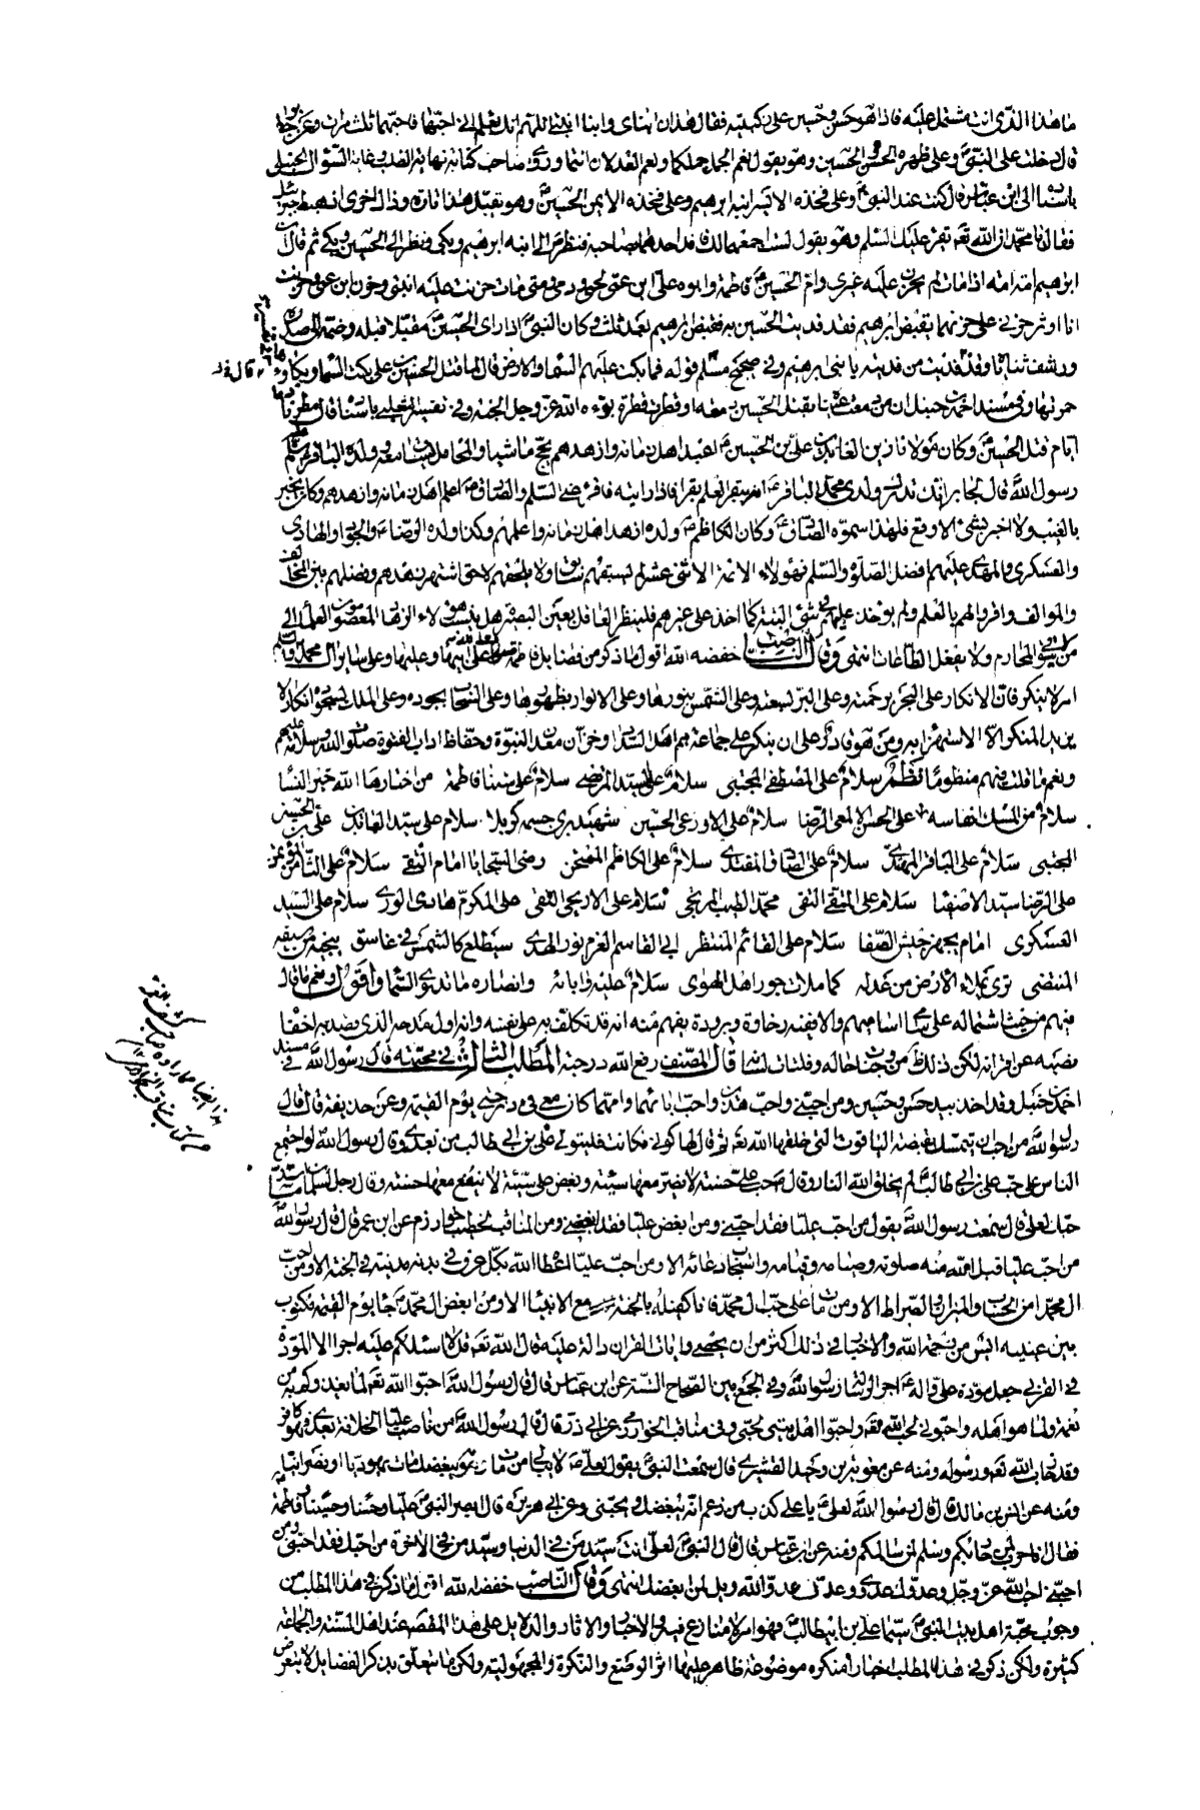 ما هذا الذى انت مشتمل عليه فاذا هو حسن وحسين على ركبتيه فقال هذان ابناى وابنا ابنتى اللهم انك تعلم انى احبهما فاحبهما ثلث مرات وعن جابر
قال دخلت على النبى وعلى ظهره الحسن والحسين وهو يقول نعم الجمل جملكما ونعم العدلان انتما وروى صاحب كتاب نهاية الطلب وغاية السؤال الحنبلى
باسناده الى ابن عباس قال كنت عند النبى وعلى فخذه الايسر ابنه ابرهيم وعلى فخذه الايمن الحسين وهو يقبل هذا تارة وذاك اخرى اذ هبط جبرئيل
فقال يا محمد ان الله تعالى يقرء عليك السلم وهو يقول لست اجمعهما لك فافد احدهما بصاحبه فنظر الى ابنه ابرهيم وبكى ونظر الى الحسين وبكى ثم قال ان
ابرهيم امه امة اذا مات لم يحزن عليه غيرى وام الحسين فاطمة وابوه على ابن عمى لحمى ودمى ومتى مات حزنت عليه ابنتى وحزن ابن عمى وحزنت
انا اوثر حزنى على حزنهما يقبض ابرهيم فقد فديت الحسين به فقبض ابرهيم بعد ثلث وكان النبى اذا راى الحسين مقبلا قبله وضمه الى صدره
ورشف ثناياه وقال فديت من فديته بابنى ابرهيم وفى صحيح مسلم قوله فما بكت عليهم السماء والارض قال لما قتل الحسين بن على بكت السماء وبكاؤها
حمرتها وفى مسند احمد بن حنبل ان من دمعت عيناه بقتل الحسين دمعة او قطرت قطرة بوءه الله عز وجل الجنة وفى تفسير الثعلبى باسناده قال مطرنا دما
ايام قتل الحسين وكان مولانا زين العابدين على بن الحسين اعبد اهل زمانه وازهدهم يحج ماشيا والمحامل تساق معه وولده الباقر سلم عليه
رسول الله قال لجابر انك تدرك ولدى محمد الباقر انه يبقر العلم بقرا فاذا رايته فاقرئه عنى السلم والصادق اعلم اهل زمانه وازهدهم وكان يخبر
بالغيب ولا اخبر بشئ الا وقع فلهذا سموه الصادق وكان الكاظم ولده ازهد اهل زمانه واعلمهم وكذا ولده الرضا والجواد والهادى
والعسكرى والمهدى عليهم افضل الصلوة والسلم فهؤلاء الائمة الاثنى عشر لم يسبقهم سابق ولا يلحقهم لاحق اشتهر زهدهم وفضلهم بين المخالف
والموالف واقروا لهم بالعلم ولم يؤخذ عليهم فى شئ البتة كما اخذ على غيرهم فلينظر العاقل بعين البصيرة هل ينسب هؤلاء الزهاد المعصومون العلماء الى
من المحارم ولا يفعل الطاعات انتهى وقال الناصب خفضه الله اقول ما ذكر من فضايل فاطمة صلوات الله على ابيها وعليها وعلى سائر ال محمد والسلم
امر لا ينكر فان الانكار على البحر برحمته وعلى البر بسعته وعلى الشمس بنورها وعلى الانوار بظهورها وعلى السحاب بجوده وعلى الملك بسجوده انكار لا
يزيد المنكر الا الاستهزاء به ومن هو قادر على ان ينكر على جماعة هم اهل السداد وخزان معدن النبوة وحفاظ اداب الفتوة صلوات الله وسلامه عليهم
ونعم ما قلت فيهم منظوما نظم سلام على المصطفى المجتبى سلام على السيد المرتضى سلام على ستنا فاطمة من اختارها الله خير النساء
سلام من المسك انفاسه على الحسن الالمعى الرضا سلام على الاورعى الحسين شهيد يرى جسمه كربلا سلام على سيد العابدين على بن الحسين
المجتبى سلام على الباقر المهتدى سلام على الصادق المقتدى سلام على الكاظم الممتحن رضى السجايا امام التقى سلام على الثامن المؤتمن
على الرضا سيد الاصفيا سلام على المتقى التقى محمد الطيب المرتجى سلام على الاريحى النقى على المكرم هادى الورى سلام على السيد
العسكرى امام يجهز جيش الصفا سلام على القائم المنتظر ابى القاسم القرم نور الهدى سيطلع كالشمس فى غاسق ينجيه من سيفه
المنتضى ترى يملاء الارض من عدله كما ملات جور اهل الهوى سلام عليه وابائه وانصاره ما تدوم السما واقول ونعم ما قال
فيهم من حيث اشتماله على اساميهم والا ففيه رخاوة وبرودة يفهم منه انه قد تكلف به على نفسه وانه اول مدحه الذى يصد به اخفاء
نصبه عن اقرانه لكن ذلك من وجنات حاله وفلتات لسانه قال المصنف رفع الله درجته المطلب الثالث فى محبته قال رسول الله فى مسند
احمد بن حنبل وقد اخذ بيد حسن وحسين من احبنى واحب هذين واحب اباهما وامهما كان معى فى درجتى يوم القيمة وعن حذيفة قال قال
رسول الله من احب ان يتمسك بقصبة الياقوت التى خلقها الله تعالى ثم قال لها كونى فكانت فليتول على بن ابى طالب من بعدى وقال رسول الله لو اجتمع
الناس على حب على بن ابى طالب لم يخلق الله النار وقال حب على حسنة لا يضر معها سيئة وبغض على سيئة لا ينفع معها حسنة وقال رجل لسلمان ما اشد
حبك لعلى قال سمعت رسول الله يقول من احب عليا فقد احبنى ومن ابغض عليا فقد ابغضنى ومن المناقب لخطيب خوارزم عن ابن عمر قال قال رسول الله
من احب عليا قبل الله منه صلوته وصيامه وقيامه واستجاب دعائه الا ومن احب عليا اعطاه الله بكل عرق فى بدنه مدينة فى الجنة الا ومن احب
ال محمد امن الحساب والميزان والصراط الا ومن مات على حب ال محمد فانا كفيله بالجنة مع الانبياء الا ومن ابغض ال محمد جاء يوم القيمة مكتوب
بين عينيه ائيس من رحمة الله والاخبار فى ذلك اكثر من ان يحصى وايات القران دالة عليه قال الله تعالى قل لا اسئلكم عليه اجرا الا المودة
فى القربى جعل مودة على واله اجرا لرسالة رسول الله وفى الجمع بين الصحاح الستة عن ابن عباس قال قال رسول الله احبوا الله تعالى لما يغذوكم به من
نعمة ولما هو اهله واحبونى لحب الله تعالى واحبوا اهل بيتى لحبى وفى مناقب الخوارزمى عن ابى ذر قال قال رسول الله من ناصب عليا الخلافة بعدى فهو كافر
وقد حارب الله تعالى ورسوله ومنه عن معوية بن وحيد القشيرى قال سمعت النبى يقول لعلى لا يبالى من مات وهو يبغضك مات يهوديا او نصرانيا
ومنه عن انس بن مالك قال قال رسول الله لعلى يا على كذب من زعم انه يبغضك ويحبنى وعن ابى هريرة قال ابصر النبى عليا وحسنا وحسينا وفاطمة
فقال انا حرب لمن حاربكم وسلم لمن سالمكم ومنه عن ابن عباس قال قال النبى لعلى انت سيد فى الدنيا وسيد فى الاخرة من احبك فقد احبنى ومن
احبنى احب الله عز وجل وعدوك عدوى وعدوى عدو الله ويل لمن ابغضك انتهى وقال الناصب خفضه الله اقول ما ذكر فى هذا المطلب من
وجوب محبة اهل بيت النبى سيما على بن ابيطالب فهو امر لا منازع فيه والاخبار والاثار والدلايل على هذا المقصد عند اهل السنة والجماعة
كثيرة ولكن ذكر فى هذا المطلب اخبارا منكرة موضوعة ظاهر عليها اثر الوضع والنكرة والمجهولية ولكن ما يتعلق بذكر الفضايل لا يتعرض